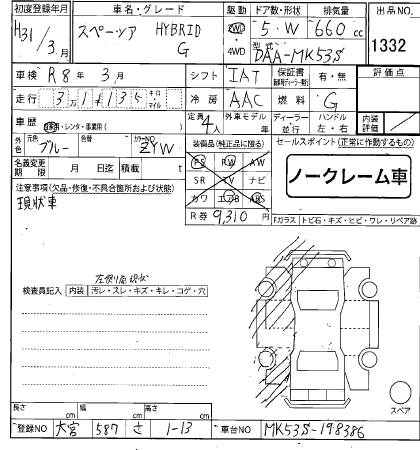 初度登録年月 車名・グレード 駆動 ドア数・形状 排気量 出品NO
H31/3月 スペーシア HYBRID G 2WD ・4WD 5・W 660cc 1332
型式 DAA-MK53S
車検 R8年 3月 シフト IAT 保証書 有・無 評価点
走行 冷房 AAC 燃料 G
車歴 レンタ・事業用( ) 定員 4人 外車モデル 年 ディーラー・並行 ハンドル 左・右 内装評価
外色 元色 ブルー 色替 カラーNO ZYW
装備品(純正品に限る) セールスポイント(正常に作動するもの)
名義変更期限 月 日迄 積載 t
PS PW AW
注意事項(欠品・修復・不具合箇所および状態)
SR TV ナビ
ノークレーム車
現状車
カワ エアB ABS
R券 9,310円
Fガラス トビ石・キズ・ヒビ・ワレ・リペア跡
検査員記入 内装 汚レ・スレ・キズ・キレ・コゲ・穴
スペア
長さ cm 幅 cm 高さ cm
登録NO 大宮 587 さ 1-13 車台NO MK53S-198386